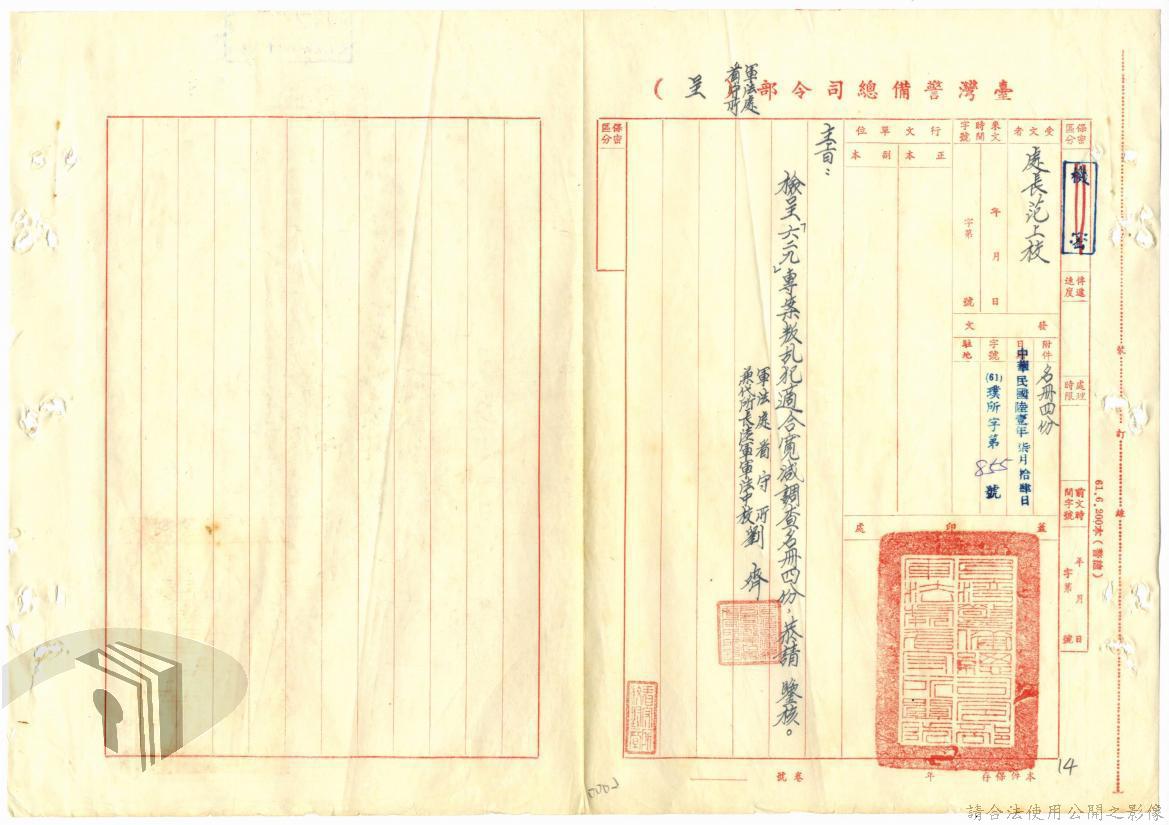 臺灣警備總司令部（軍法處看守所）（呈）
保密區分
機密
傳遞速度
處理時限
前文時間字號
年 月 日
字第 號
受文者
處長范上校
來文時間字號
年 月 日
字第 號
行文單位
正本
副本
發文
附件
名冊四份
日期
中華民國陸壹年柒月拾肆日
字號
(61)璞所字第855號
駐地
蓋印處
主旨：
檢呈「六二九」專案叛乱犯適合寬减調查名冊四份，恭請 鑒核。
軍法處看守所
兼代所長陸軍軍法中校劉 齊
保密區分
本件保存 年
卷號
14
裝 訂 線
61.6.200本（
0002
請合法使用公開之影像